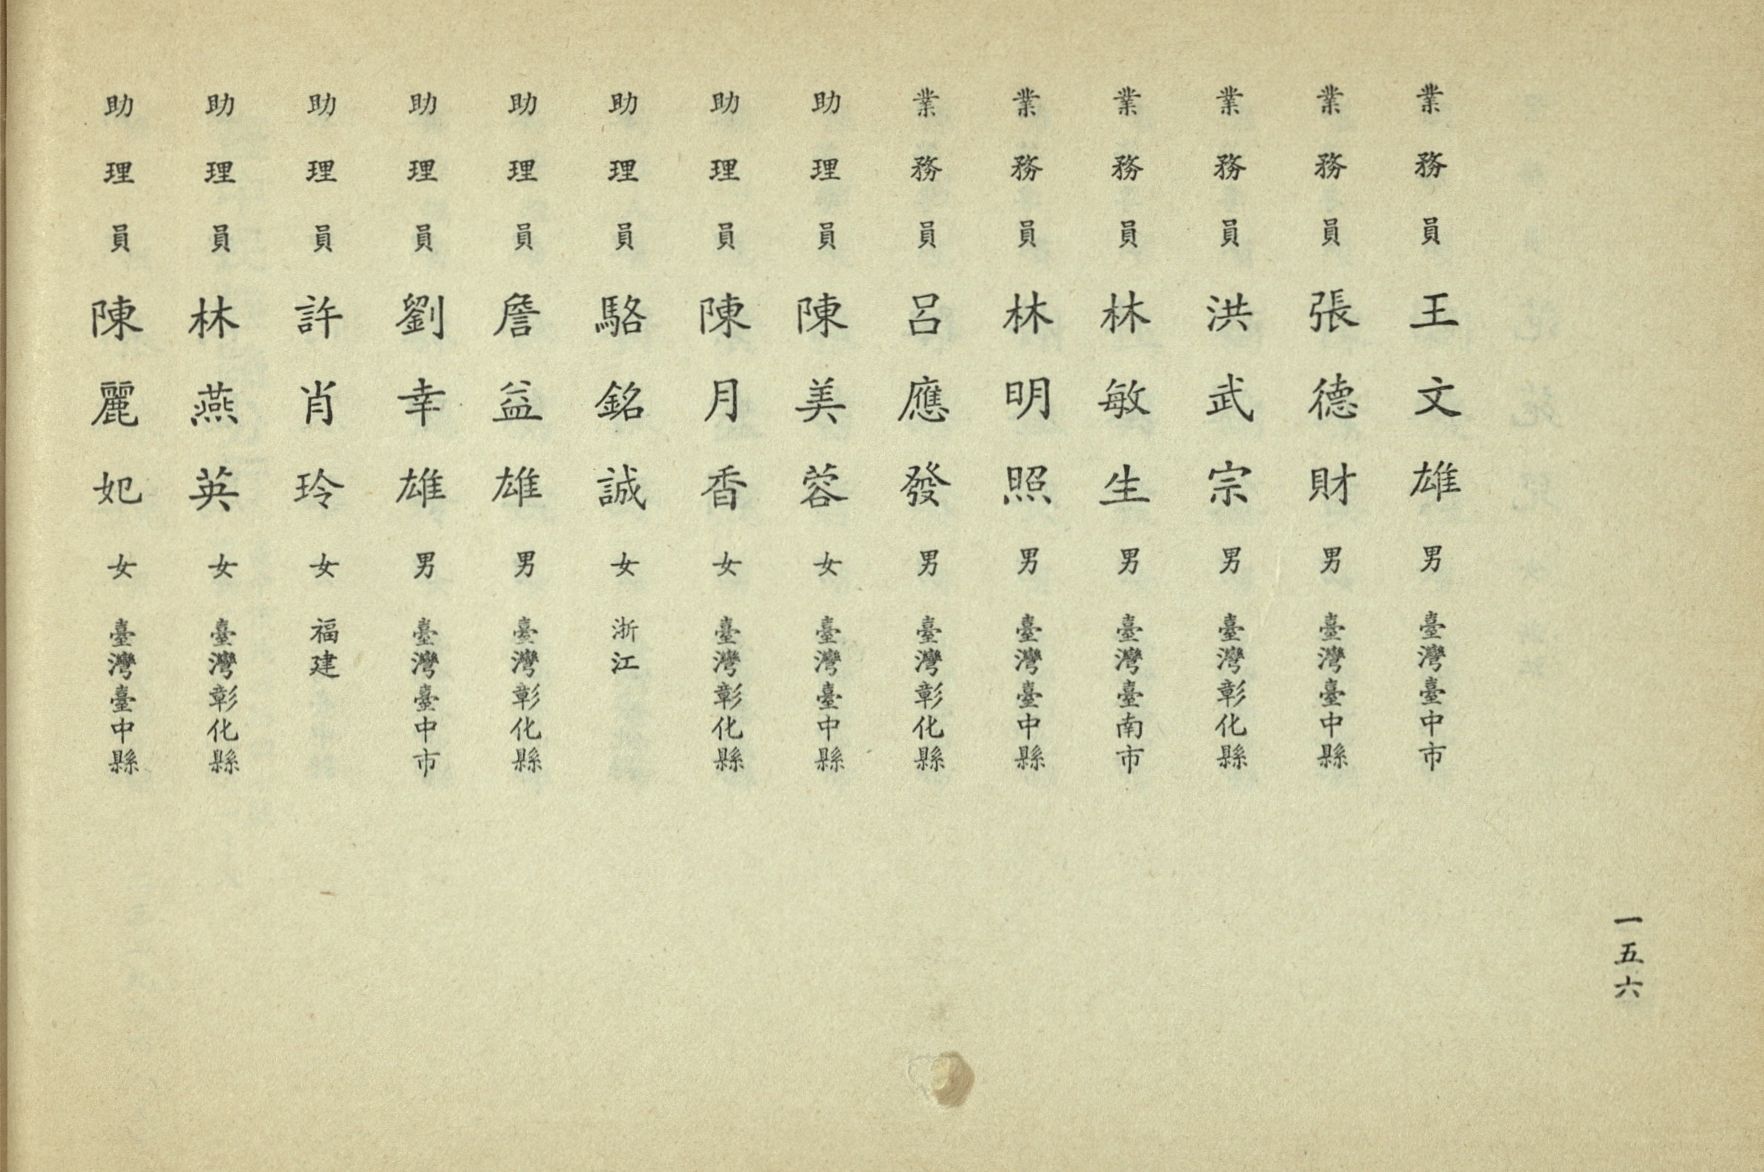 業務員王文雄男臺灣臺中市
業務員張德財男臺灣臺中縣
業務員洪武宗男臺灣彰化縣
業務員林敏生男臺灣臺南市
業務員林明照男臺灣臺中縣
業務員呂應發男臺灣彰化縣
助理員陳美蓉女臺灣臺中縣
助理員陳月香女臺灣彰化縣
助理員駱銘誠女浙江
助理員詹益雄男臺灣彰化縣
助理員劉幸雄男臺灣臺中市
助理員許肖玲女福建
助理員林燕英女臺灣彰化縣
助理員陳麗妃女臺灣臺中縣
一五六